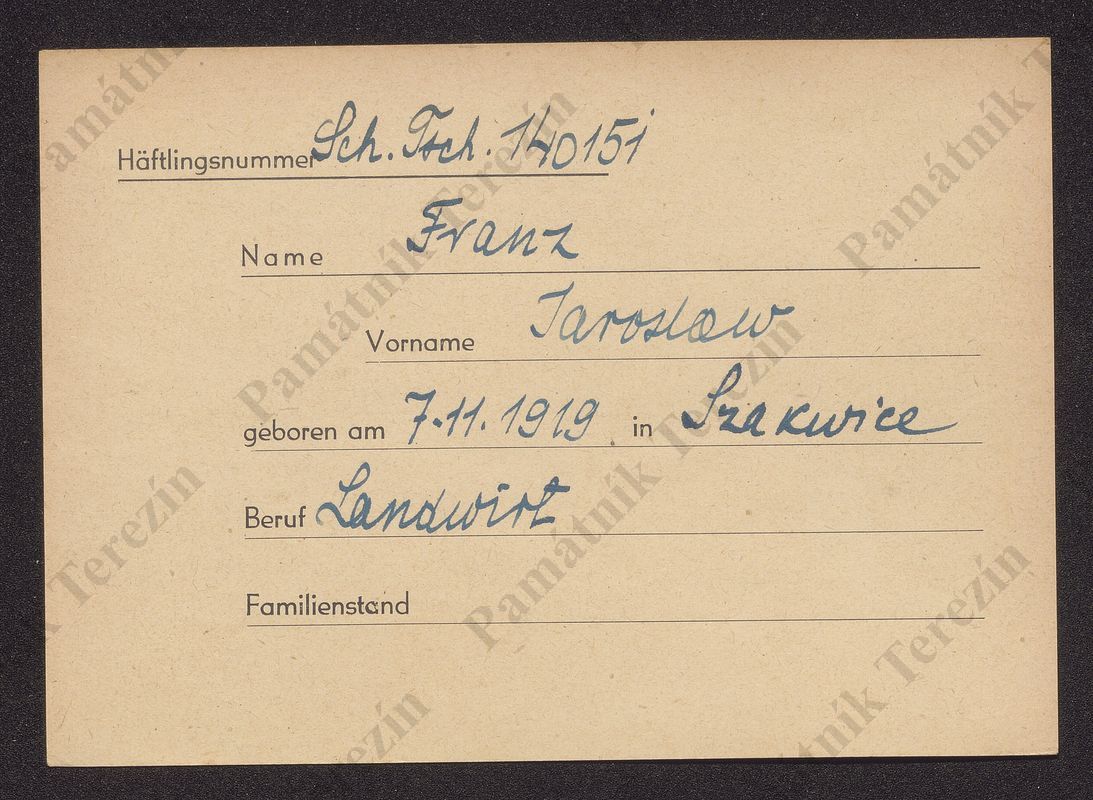 Häftlingsnummer Sch. Tsch. 140151
Name Franz
Vorname Jaroslaw
geboren am 7.11.1919 in Szakwice
Beruf Landwirt
Familienstand
Památník Terezín